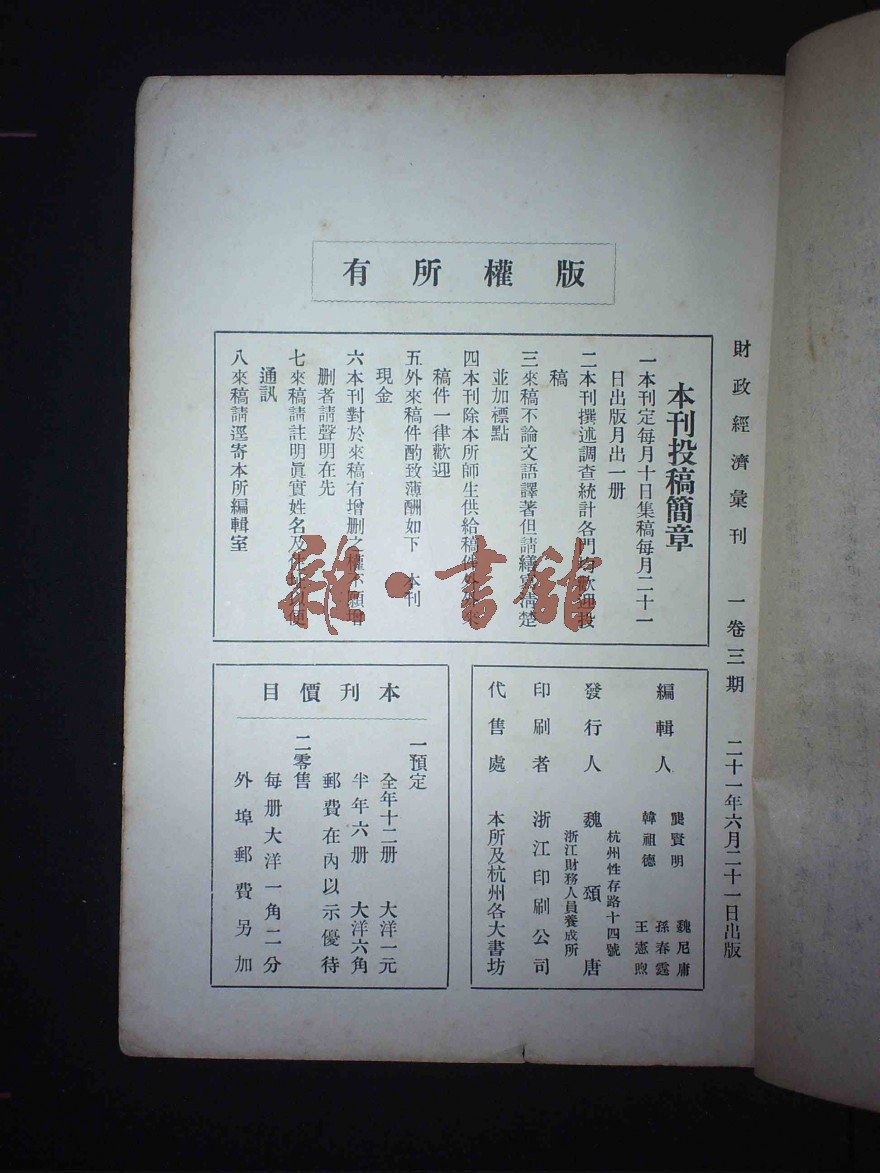 財政經濟彙刊 一卷三期 二十一年六月二十一日出版
版權所有
本刊投稿簡章
一本刊定每月十日集稿每月二十一
日出版月出一册
二本刊撰述調查統計各門均歡迎投
稿
三來稿不論文語譯著但請繕寫清楚
並加標點
四本刊除本所師生供給稿件外外來
稿件一律歡迎
五外來稿件酌致薄酬如下 本刊
現金
六本刊對於來稿有增刪之權不願增
刪者請聲明在先
七來稿請註明眞實姓名及住址以便
通訊
八來稿請逕寄本所編輯室
編輯人
龔賢明 魏尼庸
孫春霆
韓祖德 王憲煦
發行人
杭州性存路十四號
魏頌唐
浙江財務人員養成所
印刷者 浙江印刷公司
代售處 本所及杭州各大書坊
本刊價目
一預定
全年十二册 大洋一元
半年六册 大洋六角
郵費在內以示優待
二零售
每册大洋一角二分
外埠郵費另加
雜·書館